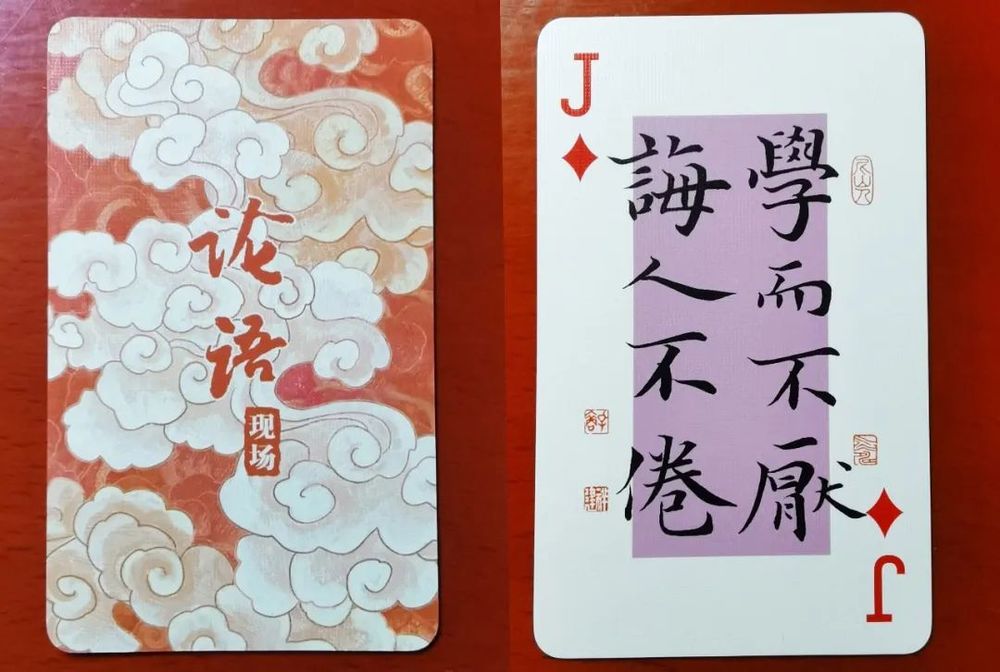 论语
现场
J
學而不厭
誨人不倦
J